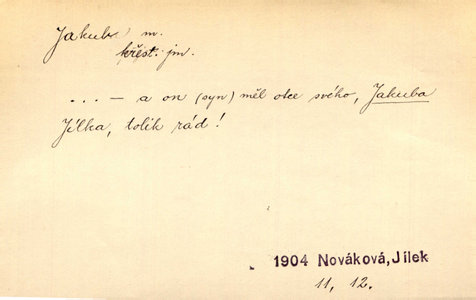 Jakub m.
křest. jm.
... – a on (syn) měl otce svého, Jakuba
Jílka, tolik rád!
1904 Nováková, Jílek
11, 12.